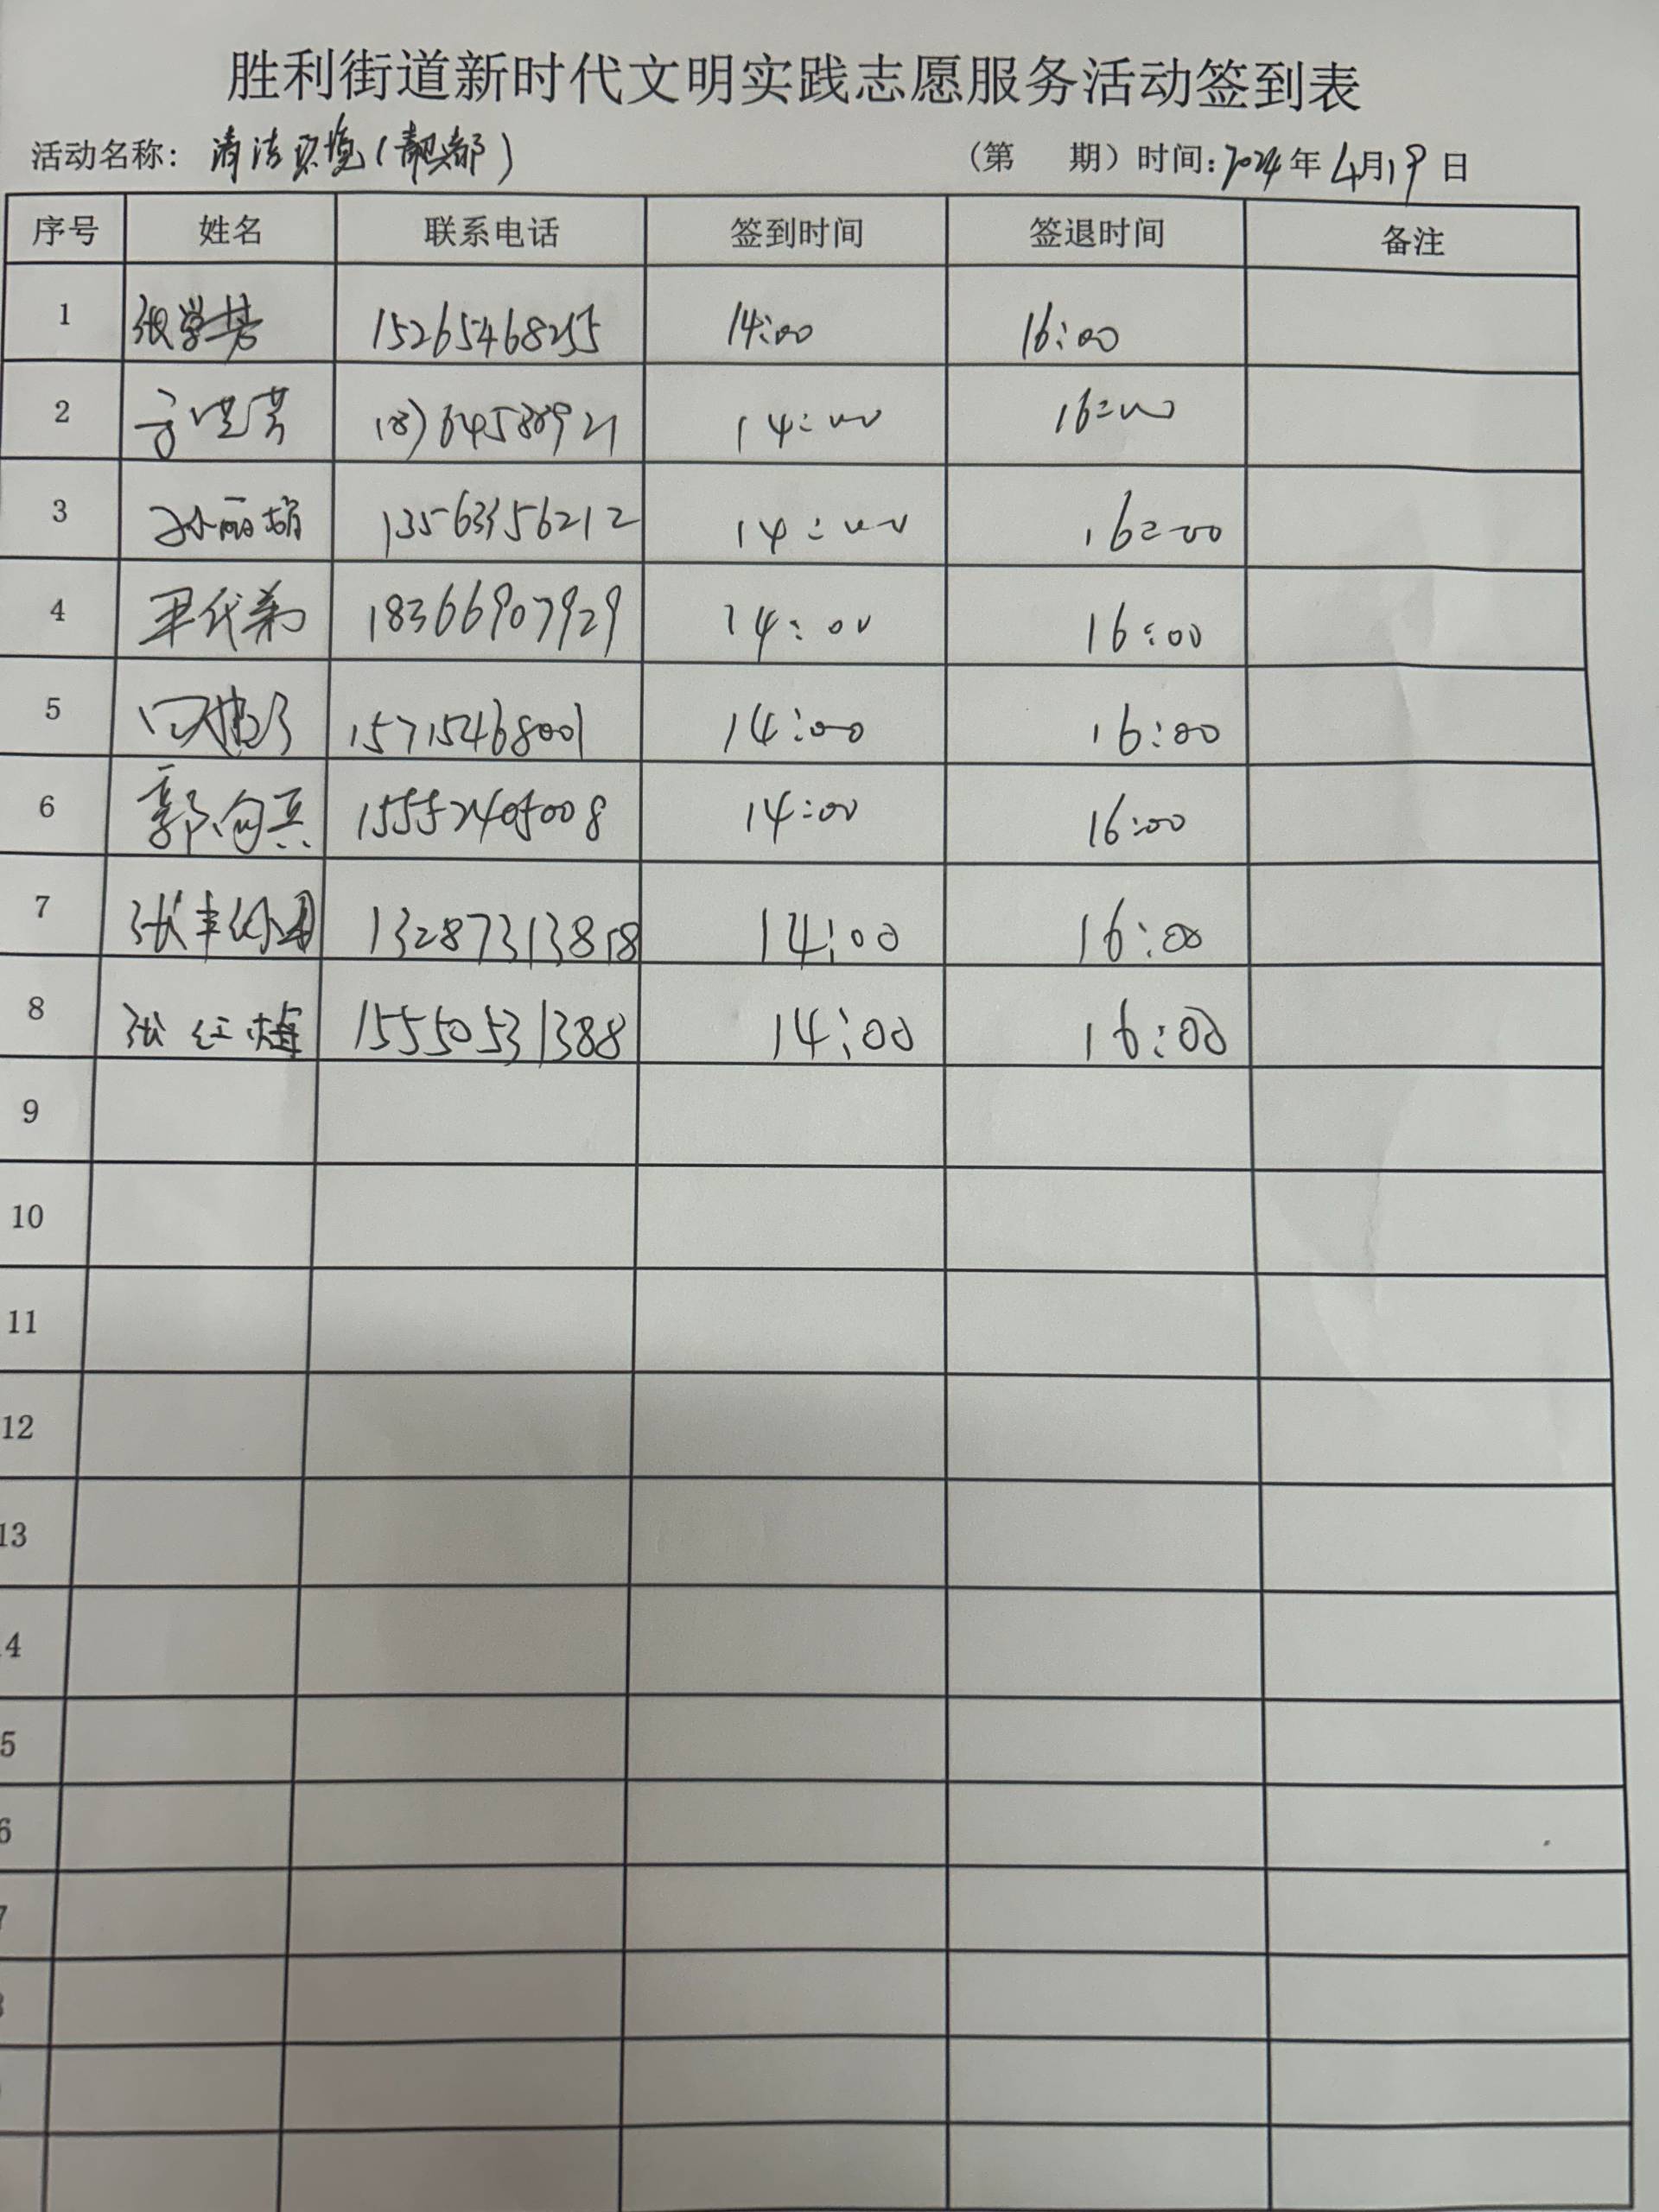 胜利街道新时代文明实践志愿服务活动签到表
活动名称：清洁环境（靓都） （第 期）时间：2024年4月19日
序号 姓名 联系电话 签到时间 签退时间 备注
1 张学芳 15265468255 14:00 16:00
2 14:00 16:00
3 孙丽娟 13563356212 14:00 16:00
4 18366907929 14:00 16:00
5 15715468001 14:00 16:00
6 郭向兵 15552405008 14:00 16:00
7 张丰 13287313818 14:00 16:00
8 张红梅 15550531388 14:00 16:00
9
10
11
12
13
4
5
6
7